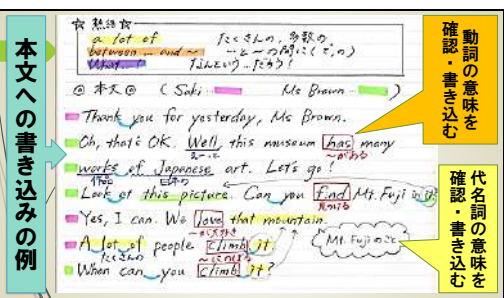 本文への書き込みの例
☆ 熟語 ☆
a lot of たくさんの, 多数の
between … and ~ …と~の間に(で,の)
What…! なんという…だろう!
◎ 本文 ◎ (Saki… Ms Brown…)
Thank you for yesterday, Ms Brown.
Oh, that's OK. Well, this museum has many
~がある
works of Japanese art. Let's go!
作品 日本の
Look at this picture. Can you find Mt. Fuji in it?
見つける
Yes, I can. We love that mountain.
~が大好き
A lot of people climb it.
たくさんの ~にのぼる
(Mt. Fujiのこと)
When can you climb it?
動詞の意味を
確認・書き込む
代名詞の意味を
確認・書き込む